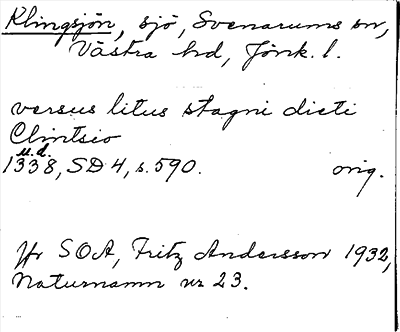 Klingsjön, sjö, Svenarums sn,
Västra hd, Jönk. l.
versus litus stagni dicti
Clintsio
u.d.
1338, SD 4, s. 590. orig.
Jfr SOA, Fritz Andersson 1932,
Naturnamn nr 23.